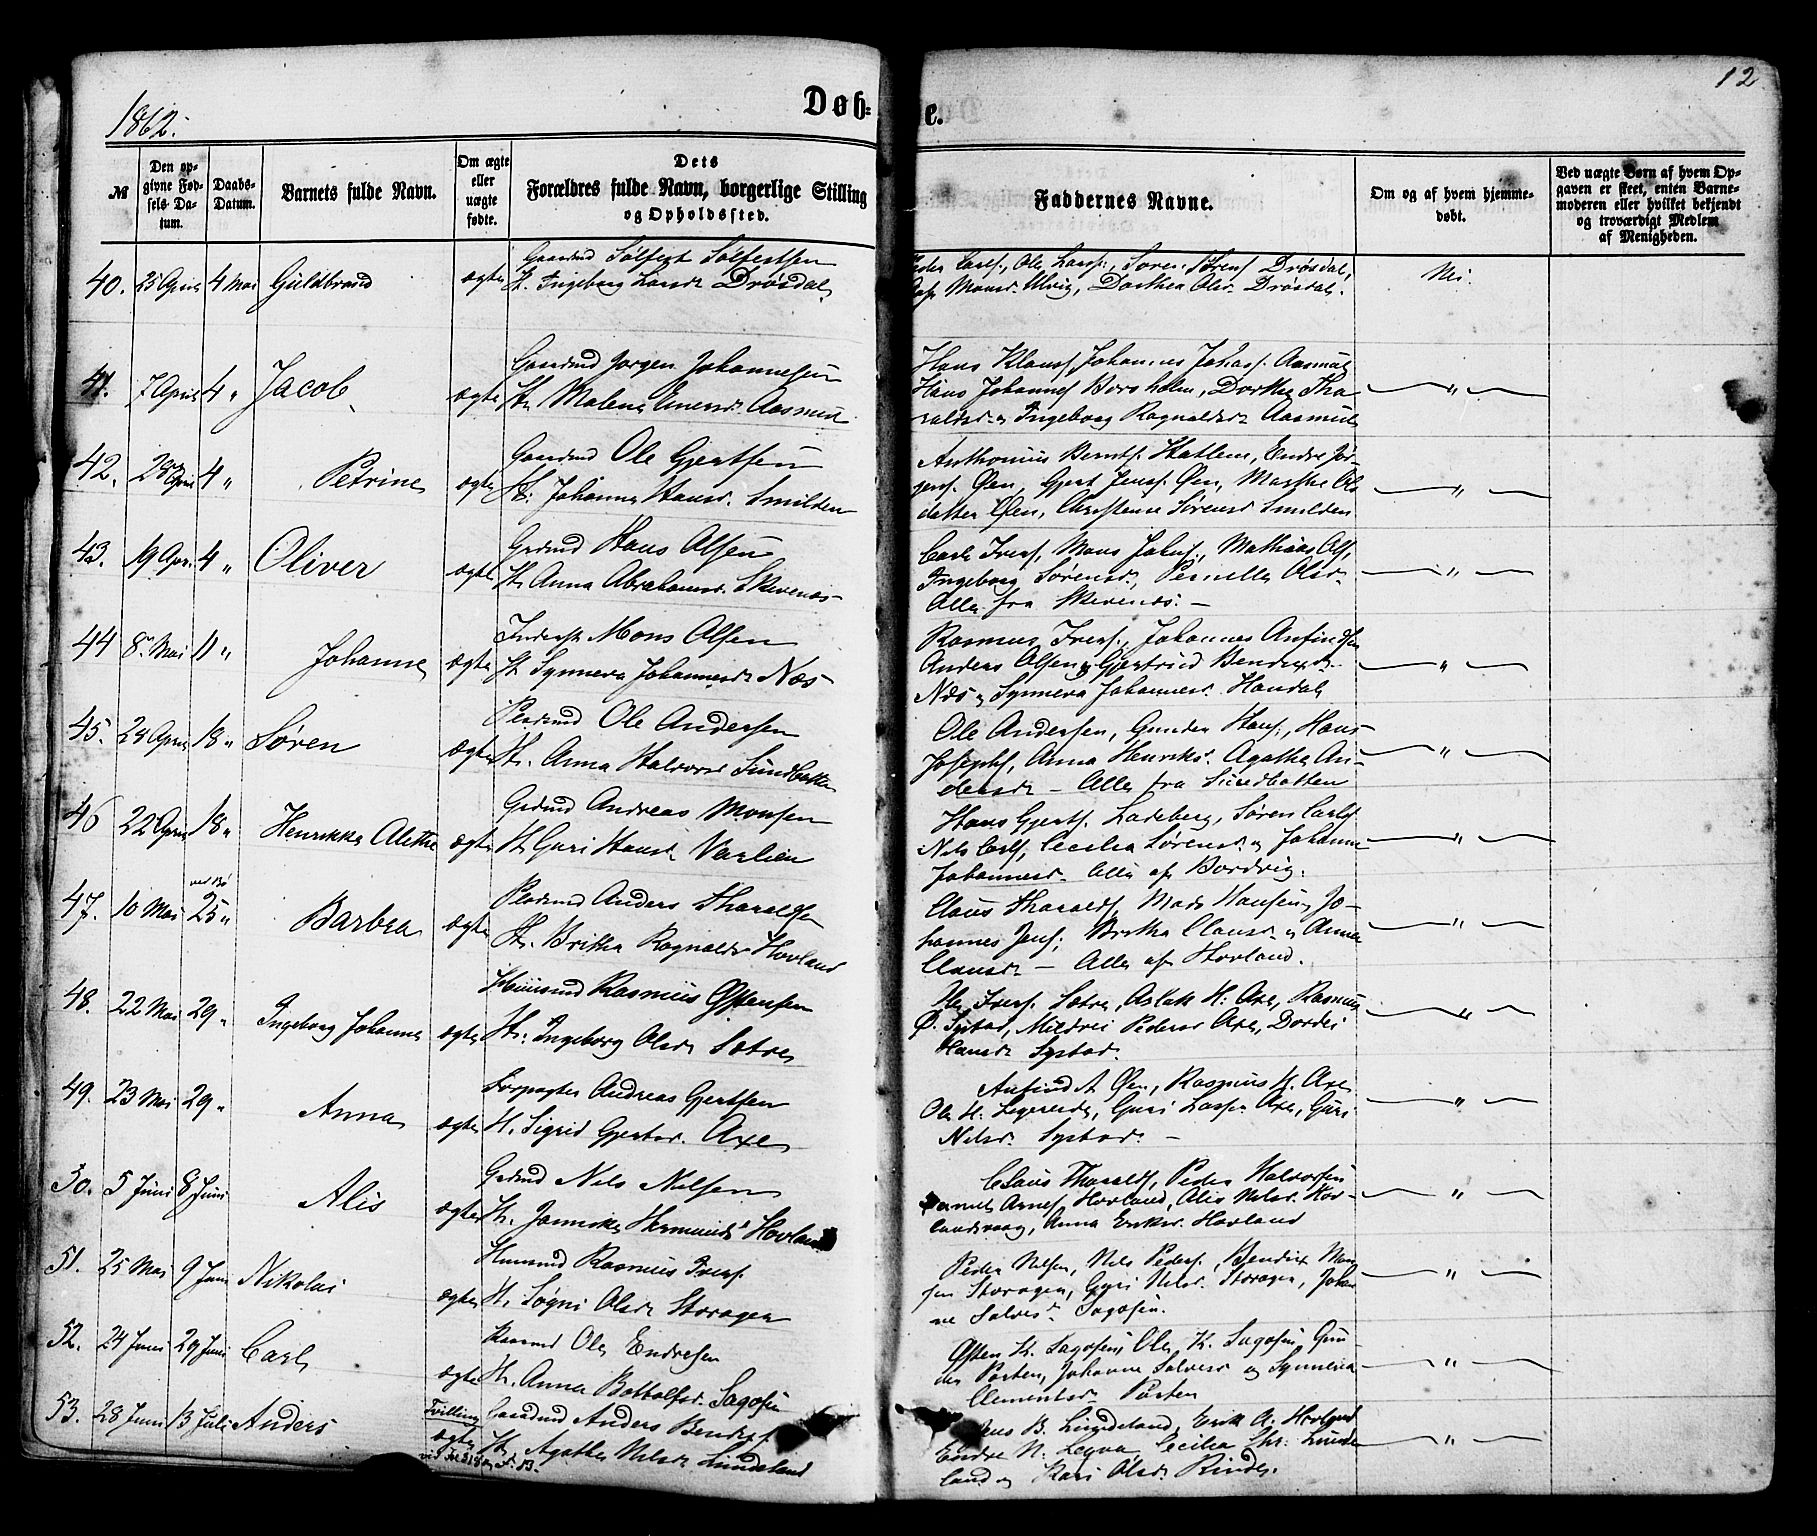 1862.
Døb=
e.
12
№
Den op-
givne Fød-
sels Da-
tum.
Daabs-
Datum.
Barnets fulde Navn.
Om ægte
eller
uægte
fødte.
Dets
Forældres fulde Navn, borgerlige Stilling
og Opholdssted.
Faddernes Navne.
Om og af hvem hjemme-
døbt.
Ved uægte Børn af hvem Op-
gaven er skeet, enten Barne-
moderen eller hvilket bekjendt
og troværdigt Medlem
af Menigheden.
40. 25 April 4 Mai Guldbrand ægte
Gaardmd
H. Ingeborg Larsd. Drösdal
Peder Carls., Ole Larss., Drösdal,
Monsd. Ulvig, Dorthea Olsd. Drösdal.
Nei.
41. 7 April 4 " Jacob ægte
Gaardmd Jørgen Johannesen
H. Malena Aasmul
Hans Klauss, Johannes Johass. Aasmul
Hans Johanness Borsholm, Dorthe Tha-
raldsd. og Ingeborg Ragnaldsd. Aasmul
"
42. 28 April 4 " Petrine ægte
Gaardmd Ole Gjertsen
H. Johanna Hansd. Smilden
Anthonius Berntss. Hatlem, Endre Jør-
gens. Øen, Gjert Jenss. Øen, Marthe Ols-
datter Øen, Christence Sørensd. Smilden
"
43. 19 Apr. 4 " Oliver ægte
Grdmd Hans Olsen
H. Anna Abrahamsd. Skivenæs
Carl Iverss., Mons Johns., Mathias Ols.,
Ingeborg Sørensd., Pernille Olsd.
Alle fra Skivenæs. -
"
44 8 Mai 11 " Johanne ægte
Inderst Mons Olsen
H. Synneva Johannesd. Næs
Rasmus Iverss., Johannes Anfindsen
Anders Olsen, Gjertrud Bendixd.
Næs, Synneva Johannesd. Handal
"
45. 24 April 18 " Søren ægte
Pladsmd Ole Andersen
H. Anna Halvorsd Sundbotten
Ole Andersen, Gunder Hanss., Hans
Josephs, Anna Henriksd. Agathe An-
dersd. - Alle fra Sundbotten
"
46 22 April 18 " Henrikke Alethe ægte
Grdmd Andreas Monsen
H. Guri Hansd. Varlien
Hans Gjerts. Ladeberg, Søren Carls
Nils Carls, Cecilia Sørensd. og Johanne
Johannesd. Alle af Bordvig.
"
47. 10 Mai ved Bø 25 " Barbra ægte
Pladsmd Anders Tharaldsen
H. Britha Ragnaldsd. Hovland
Claus Tharalds, Mads Hansen, Jo-
hannes Jens; Britha Clausd. og Anna
Clausd. - Alle af Hovland.
"
48. 22 Mai 29 " Ingeborg Johanne ægte
Huusmd Rasmus Østensen
H. Ingeborg Olsd. Sætre
Ole Iverss. Sætre, Aslak H. Axe, Rasmus
Ø. Systad, Mildrei Pedersd Axe, Dordei
Hansd. Systad.
"
49. 23 Mai 29 " Anna ægte
Forpagter Andreas Gjertsen
H. Sigrid Gjertsd. Axe
Anfind A. Øen, Rasmus H. Axe
Ole H. Guri Larsd. Axe, Guri
Nilsd. Systad. -
"
50. 5 Juni 8 Juni Alis ægte
Grdmd Nils Nilsen
H. Jannike Hermunds. Hovland
Claus Tharalds, Peder Haldorsen
Arness Hovland, Alis Nilsd. Hov-
landsvaag, Anna Eriksd. Hovland
"
51. 25 Mai 9 Juni Nikolai ægte
Huusmd Rasmus Iverss.
H. Søgni Olsd. Storagen
Peder Nilsen, Nils Pederss, Bendix Mon-
sen Storagen, Guri Nilsd. Storagen, Johan-
ne Salvesd. Sagosen.
"
52. 24 Juni 29 Juni Carl ægte
Ole Endresen
H. Anna Bottolfsd. Sagosen
Østen K. Sagosen, Ole K. Sagosen, Gun-
der Porten, Johanne Salvesd. og Synneva
Clementsd. Porten
"
53. 28 Juni 13 Juli Anders Tvilling ægte
Gaardmd Anders Bendixs.
H. Agathe Nilsd. Lundeland
B. Lundeland, Erik A. Hovland
Endre N. Leqva, Cecilia Chr. Lunde-
land og Kari Olsd. Rinde.
"